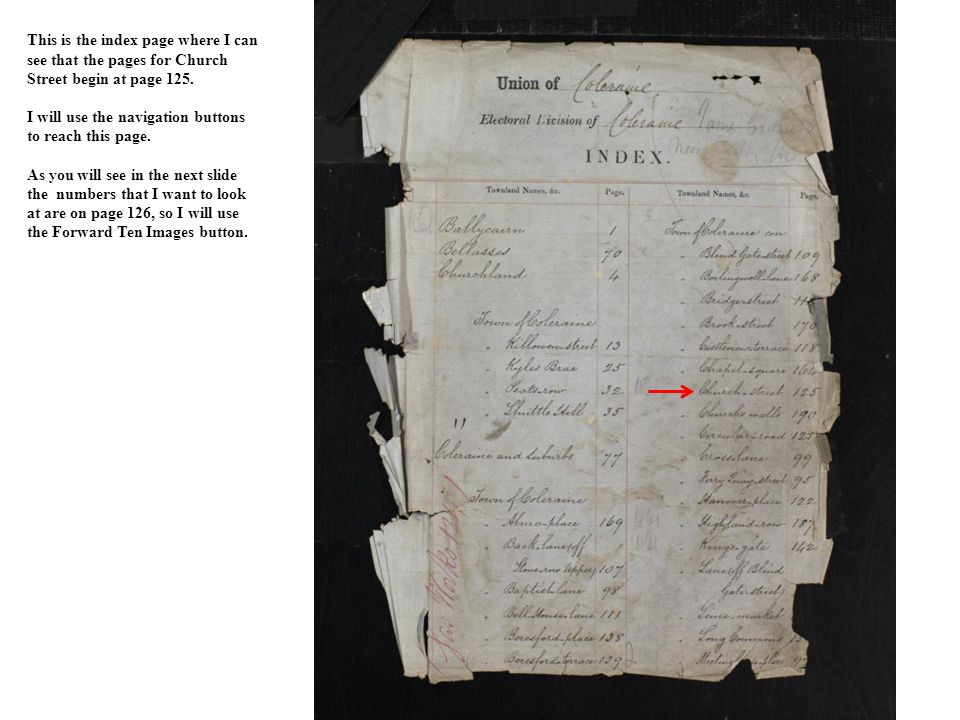 This is the index page where I can
see that the pages for Church
Street begin at page 125.
I will use the navigation buttons
to reach this page.
As you will see in the next slide
the numbers that I want to look
at are on page 126, so I will use
the Forward Ten Images button.
Union of Coleraine
Electoral Division of Coleraine
INDEX.
Townland Names, &c. Page.
Ballycairn 1
Bellasses 70
Churchland 4
Town of Coleraine
" Killowen-street 13
" Kyles Brae 25
" Peats-row 32
" Shuttle Hill 35
Coleraine and Suburbs 77
Town of Coleraine
" Alma-place 169
" Back-lane (off
Stone-row Upper) 107
" Baptist-lane 98
" Bell-House-lane 111
" Beresford-place 138
" Beresford-terrace 139
Townland Names, &c. Page.
Town of Coleraine con
" Blind Gate-street 109
" Boilingwell-lane 168
" Bridge-street
" Brook-street 170
" Castleview-terrace 118
" Chapel-square 164
" Church-street 125
" Church walls 190
" Circular-road
" Cross-lane 99
" Ferry Quay-street 95
" Hanover-place 122
" Highland-row 187
" Kings-gate 142
" Lane (off Blind
Gate-street)
" Lime-market
" Long Commons